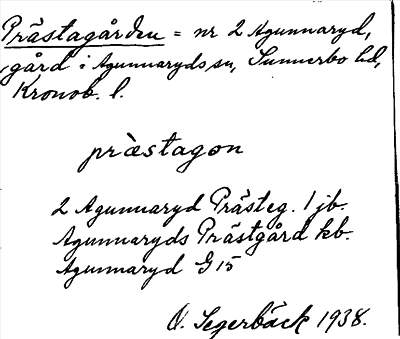 Prästagården = nr 2 Agunnaryd,
gård i Agunnaryds sn, Sunnerbo hd,
Kronob. l.
pràestagon
2 Agunnaryd Prästeg. 1 jb.
Agunnaryds Prästgård kb.
Agunnaryd G 15
O. Segerbäck 1938.